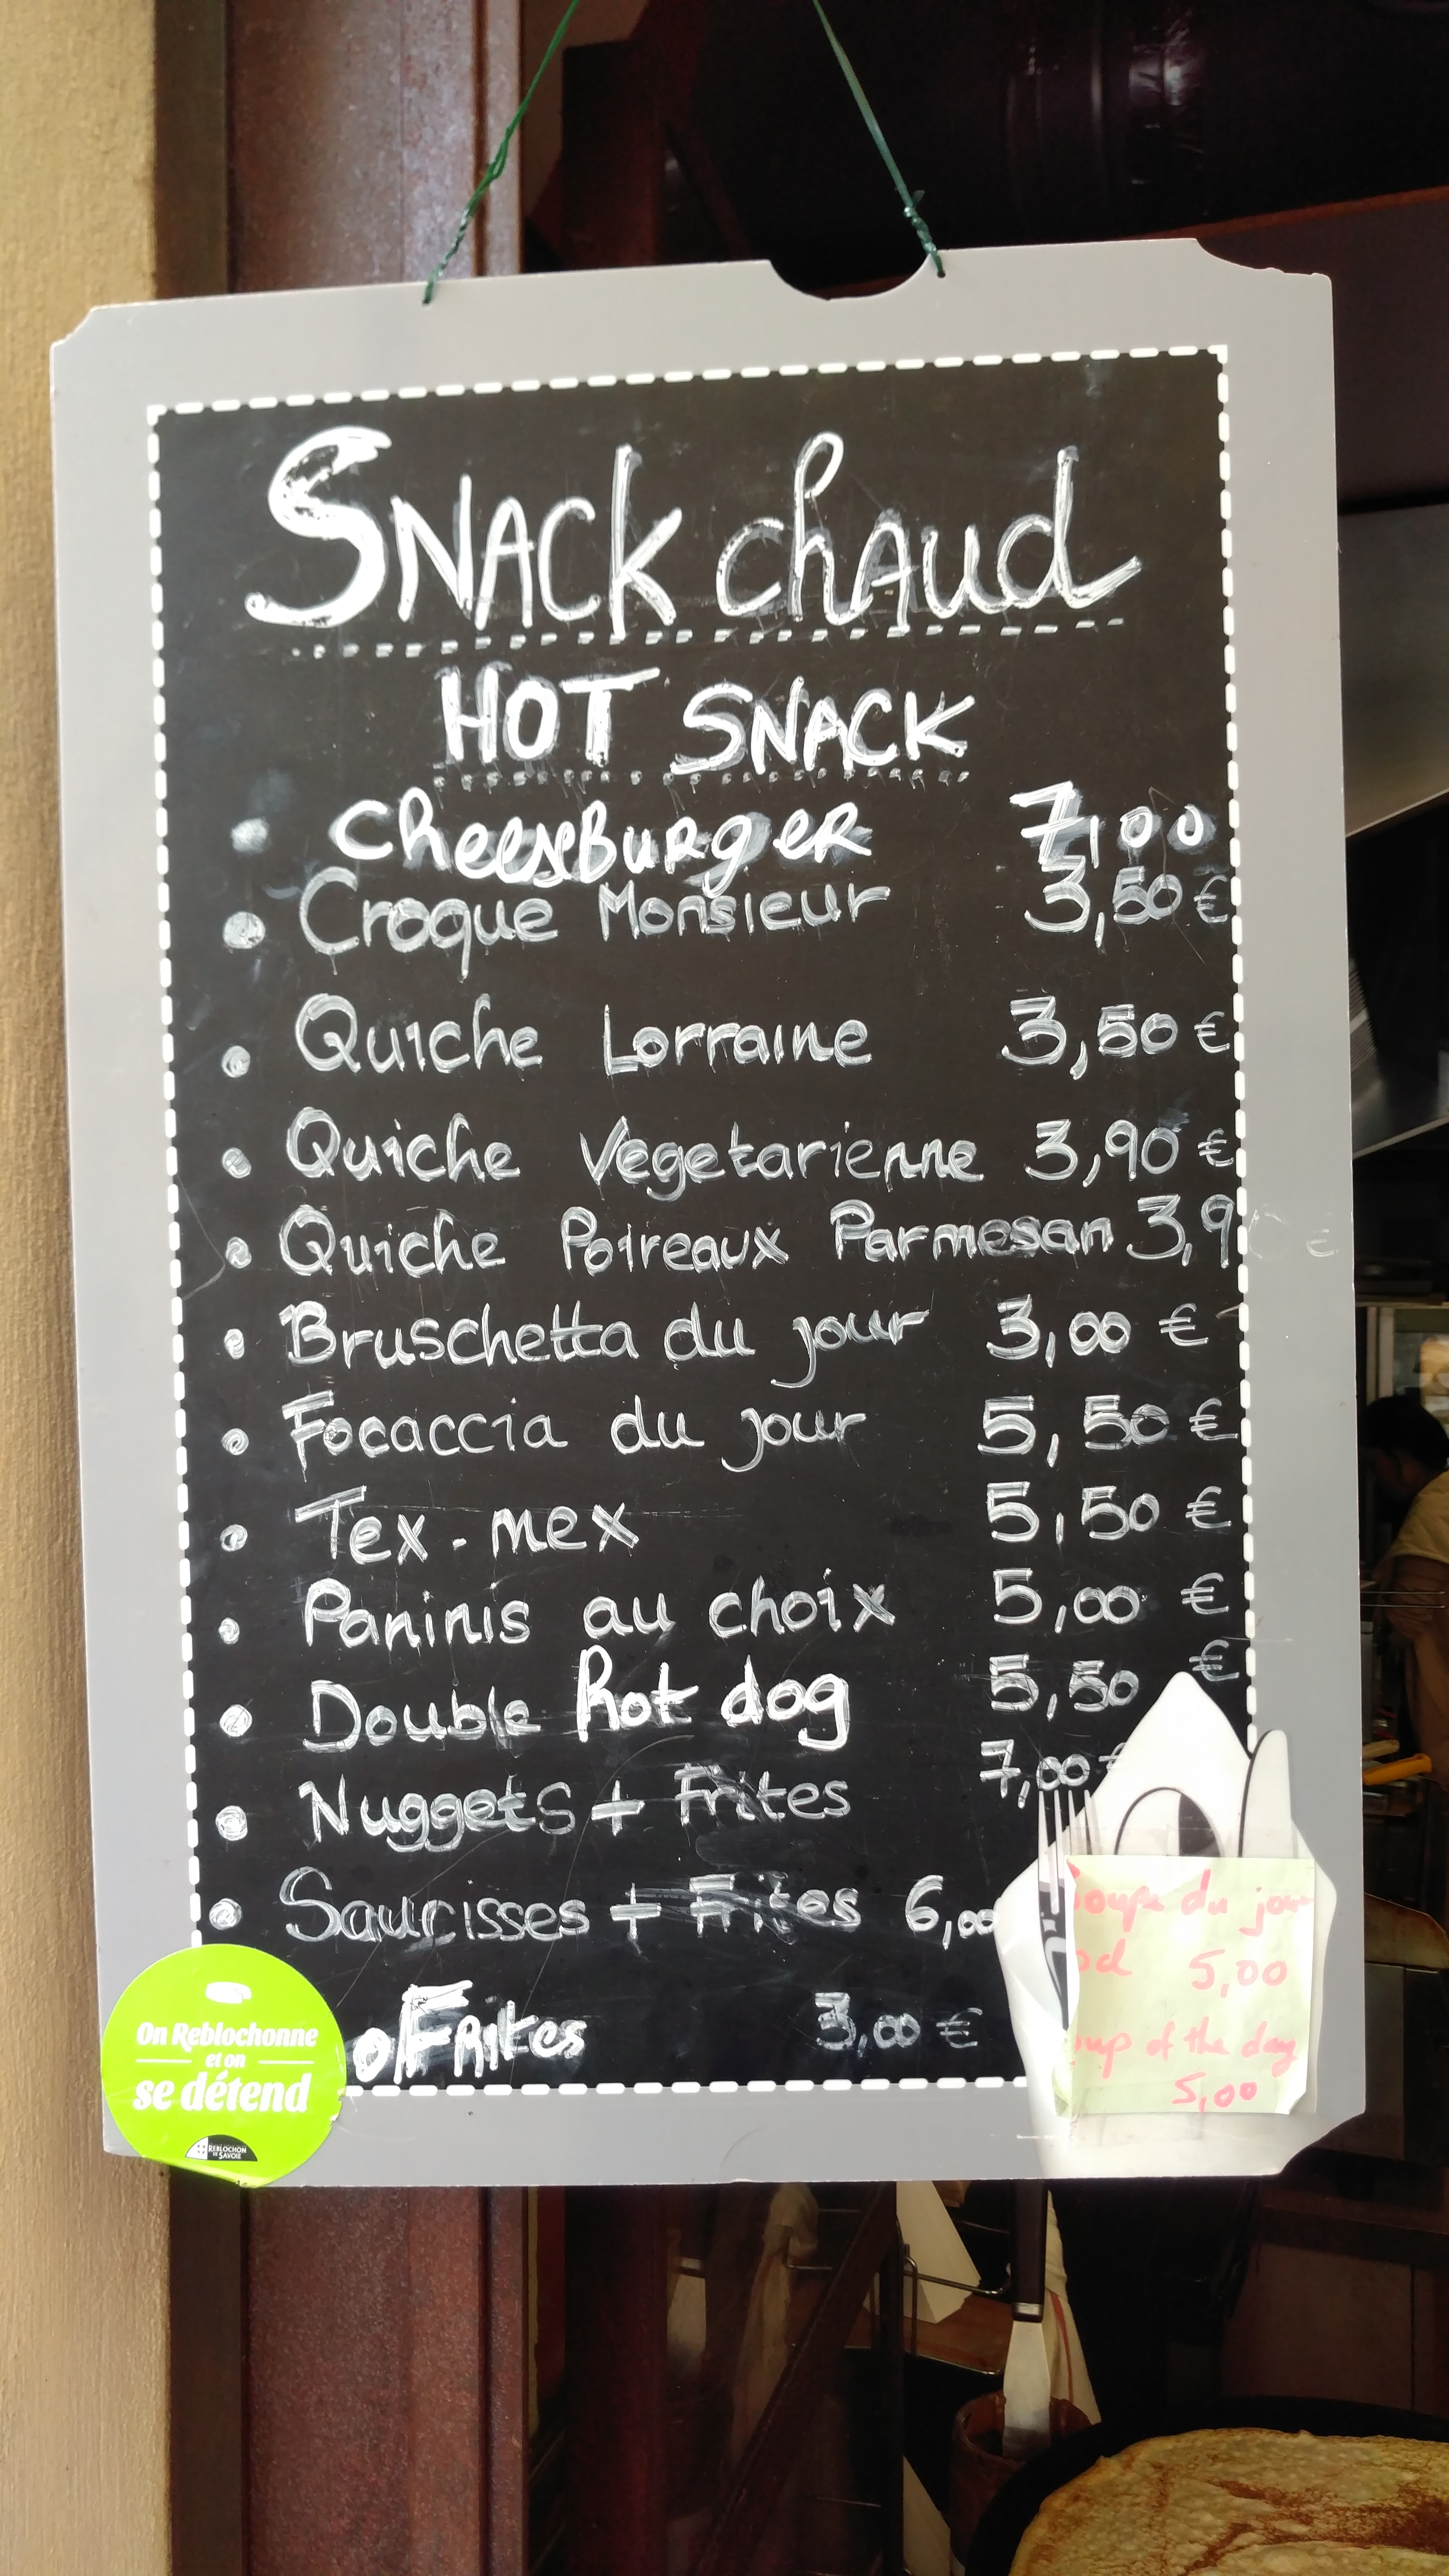 SNACK chAud
HOT SNACK
• CheeseBurgER 7,00
• Croque Monsieur 3,50 €
• Quiche Lorraine 3,50 €
• Quiche Vegetarienne 3,90 €
• Quiche Poireaux Parmesan 3,9 €
• Bruschetta du jour 3,00 €
• Focaccia du jour 5,50 €
• Tex-mex 5,50 €
• Paninis au choix 5,00 €
• Double hot dog 5,50 €
• Nuggets + Frites 7,00 €
• Saucisses + Frites 6,00
• Frites 3,00 €
On Reblochonne
et on
se détend
REBLOCHON
DE SAVOIE
soupe du jour
5,00
of the day
5,00